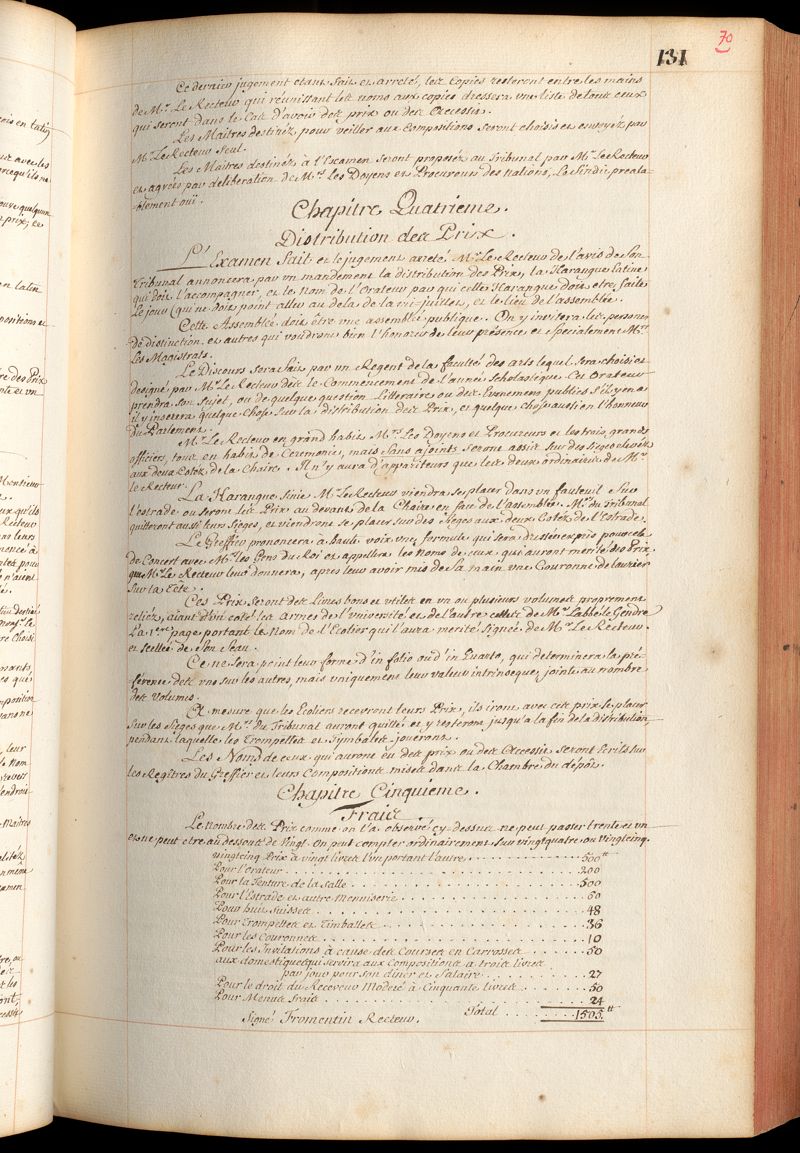 131
70
Ce dernier jugement etant fait et arreté, les Copies resteront entre les mains
de Mr. Le Recteur qui réunissant les noms aux copies dressera une liste de tous ceux
qui seront dans le Cas d'avoir des prix ou des Accessits.
Les Maitres destinez pour veiller aux Compositions seront choisis et envoyez par
Mr. Le Recteur Seul.
Les Maitres destinez à l'Examen seront proposez au Tribunal par Mr. Le Recteur
et agréés par deliberation de Mrs. Les Doyens et Procureurs des Nations, Le Sindic preala-
blement oüi.
Chapitre Quatrieme.
Distribution des Prix.
L'Examen fait et le jugement arreté Mr. Le Recteur de l'avis de Son
Tribunal annoncera par un mandement la distribution des Prix, la Harangue latine
qui doit l'accompagner, et le Nom de l'Orateur par qui cette Harangue doit etre faite
Le jour (qui ne doit point aller au dela de la mi-juillet, et le lieu de l'assemblée.
Cette Assemblée doit être une assemblée publique. On y invitera les personnes
de distinction et autres qui voudront bien l'honorer de leur présence et specialement Mrs.
Les Magistrats.
Le Discours sera fait par un Regent de la faculté des arts lequel sera choisi et
designé par Mr. Le Recteur dès le Commencement de l'année Scholastique Cet Orateur
prendra son Sujet, ou de quelque question Litteraire ou des Evenemens publics s'il y en a
il y inserera quelque chose sur la distribution des Prix, et quelque chose aussi en l'honneur
du Parlement.
Mr. Le Recteur en grand habit, Mrs. Les Doyens et Procureurs et les trois grands
officiers, tous en habit de Ceremonie, mais sans ajoints seront assis sur des Sieges elevés
aux deux Cotés de la Chaire. Il n'y aura d'appariteurs que les deux ordinaires de Mr.
le Recteur.
La Harangue finie Mr. Le Recteur viendra se placer dans un fauteuil Sur
l'estrade ou seront les Prix au devant de la Chaire en face de l'assemblée. Mrs. du Tribunal
quitteront aussi leurs Sièges, et viendront se placer sur des Sieges aux deux Cotés de l'Estrade.
Le Greffier prononcera à haute voix une formule qui sera dressée expres pour cela
de Concert avec Mrs. les Gens du Roi et appellera les Noms de ceux qui auront merité des Prix
que Mr. Le Recteur leur donnera, apres leur avoir mis de sa main une Couronne de laurier
sur la Tete.
Ces Prix seront des Livres bons et utiles en un ou plusieurs volumes proprement
reliés, aiant d'un coté les armes de l'université et de l'autre celles de Mr. Labbé le Gendre
La 1ere page portant le Nom de l'Ecolier qui l'aura merité signée de Mr. Le Recteur
et scellée de Son Seau.
Ce ne sera point leur forme d'in folio ou d'in Quarto, qui determinera la pré-
férence des uns sur les autres, mais uniquement leur valeur intrinseque, jointe au nombre
des Volumes.
A mesure que les Ecoliers recevront leurs Prix, ils iront avec ces prix se placer
sur les Sièges que Mrs. du Tribunal auront quitté et y resteront jusqu'a la fin de la distribution,
pendant laquelle les Trompettes et Tymbales joueront.
Les Noms de ceux qui auront eu des prix ou des Accessits seront Ecrits sur
les Regitres du Greffier et leurs Compositions mises dans la Chambre du dépôt.
Chapitre Cinquieme.
Frais.
Le Nombre des Prix comme on l'a observé cy-dessus ne peut passer trente et un
et ne peut etre au dessous de vingt. On peut compter ordinairement sur vingtquatre ou vingtcinq.
vingtcinq Prix à vingt livres l'un portant l'autre . . . 500 tt
Pour l'Orateur . . . 200
Pour la Tenture de la Salle . . . 500
Pour l'Estrade et autre Menuiserie . . . 60
Pour huit Suisses . . . 48
Pour Trompettes et Timballes . . . 36
Pour les Couronnes . . . 10
Pour les Invitations à cause des Courses en Carrosses . . . 50
aux domestiques qui servira aux Compositions a trois livres
par jour pour son diner et Salaire . . . 27
Pour le droit du Receveur Moderé à Cinquante livres . . . 50
Pour Menus frais . . . 24
Signé Fromentin Recteur. Total . . . 1505. tt